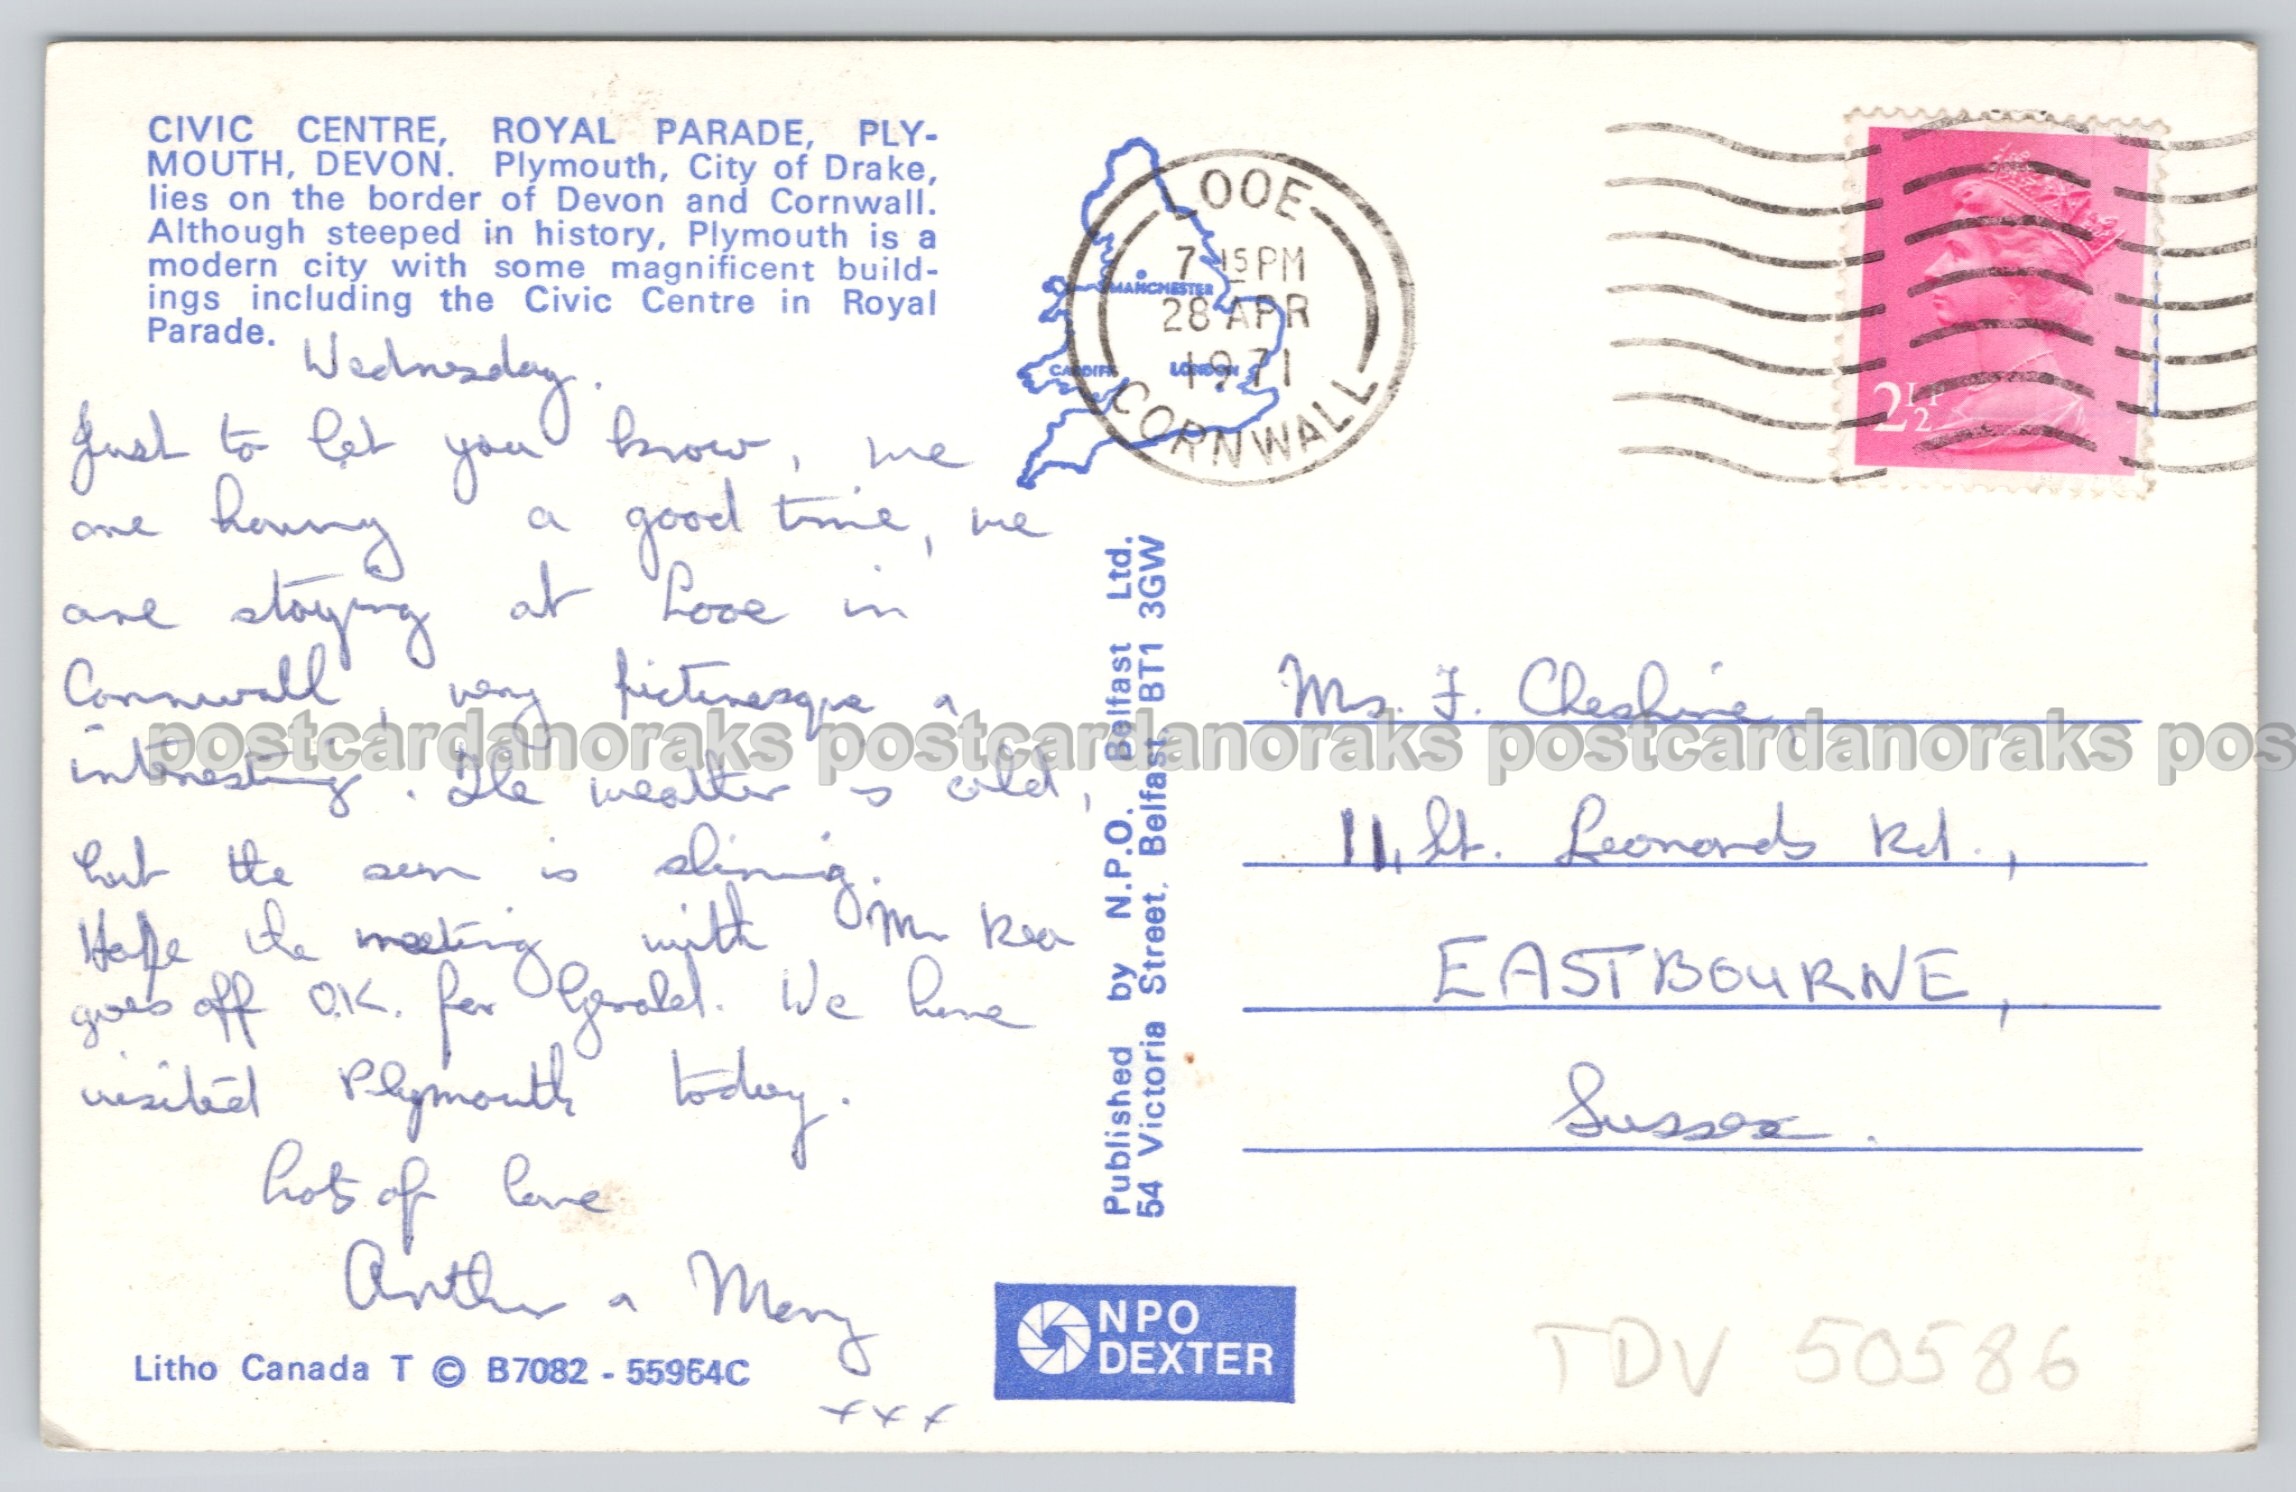 CIVIC CENTRE, ROYAL PARADE, PLY-
MOUTH, DEVON. Plymouth, City of Drake,
lies on the border of Devon and Cornwall.
Although steeped in history, Plymouth is a
modern city with some magnificent build-
ings including the Civic Centre in Royal
Parade.
Wednesday.
Just to let you know, we
are having a good time, we
are staying at Looe in
Cornwall, very picturesque &
interesting. The weather is cold,
but the sun is shining.
Hope the meeting with Mr Rea
goes off O.K. for Gerald. We have
visited Plymouth today.
Lots of love
Arthur & Mary
xxx
Litho Canada T © B7082 - 55964C
LOOE
7 15 PM
28 APR
1971
CORNWALL
MANCHESTER
CARDIFF
LONDON
2½P
Published by N.P.O. Belfast Ltd.
54 Victoria Street, Belfast, BT1 3GW
Ms. F. Cheshire
11, St. Leonards Rd.,
EASTBOURNE,
Sussex.
NPO
DEXTER
TDV 50586
postcardanoraks postcardanoraks postcardanoraks pos